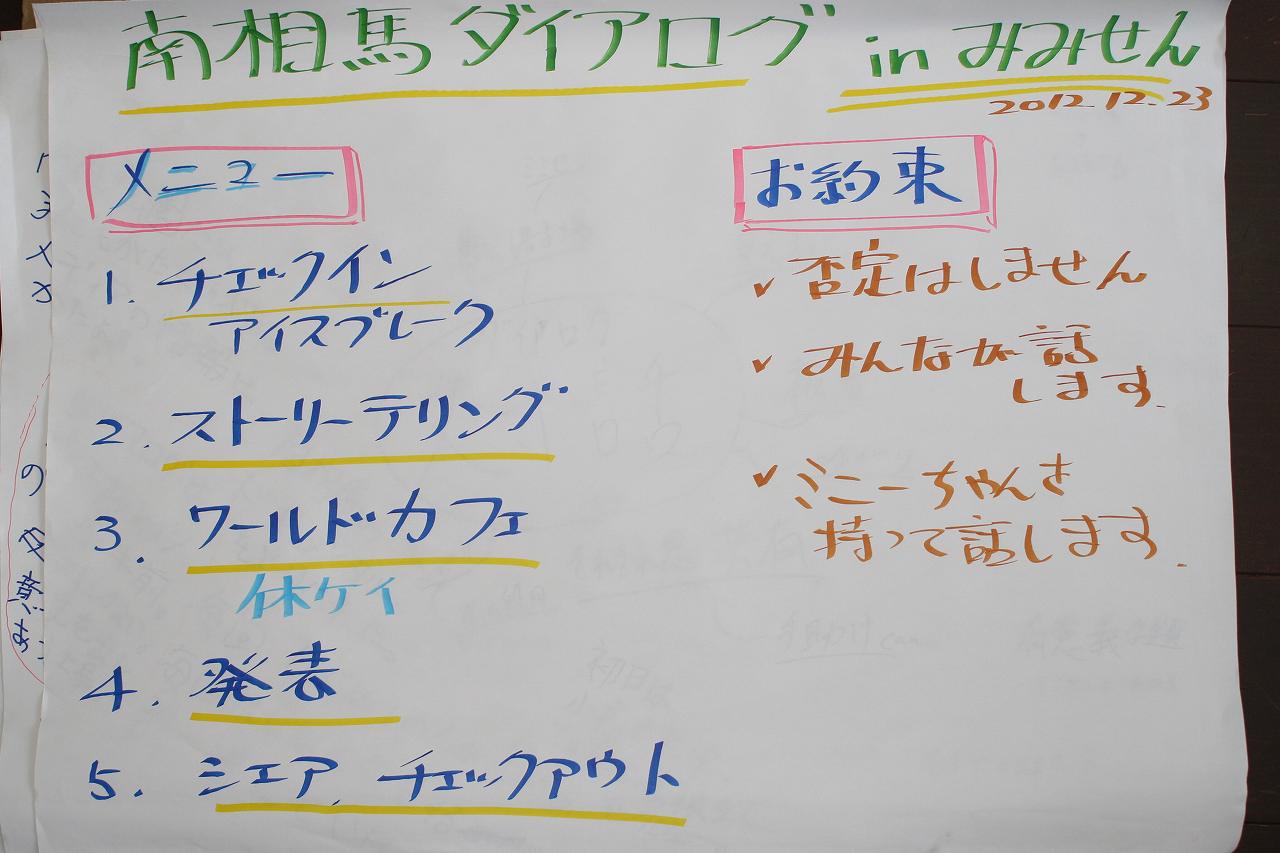 南相馬ダイアログ in みみせん
2012.12.23
メニュー
1. チェックイン
アイスブレーク
2. ストーリーテリング
3. ワールドカフェ
休ケイ
4. 発表
5. シェア、チェックアウト
お約束
✓ 否定はしません
✓ みんなが話
します.
✓ ミニーちゃんを
持って話します.